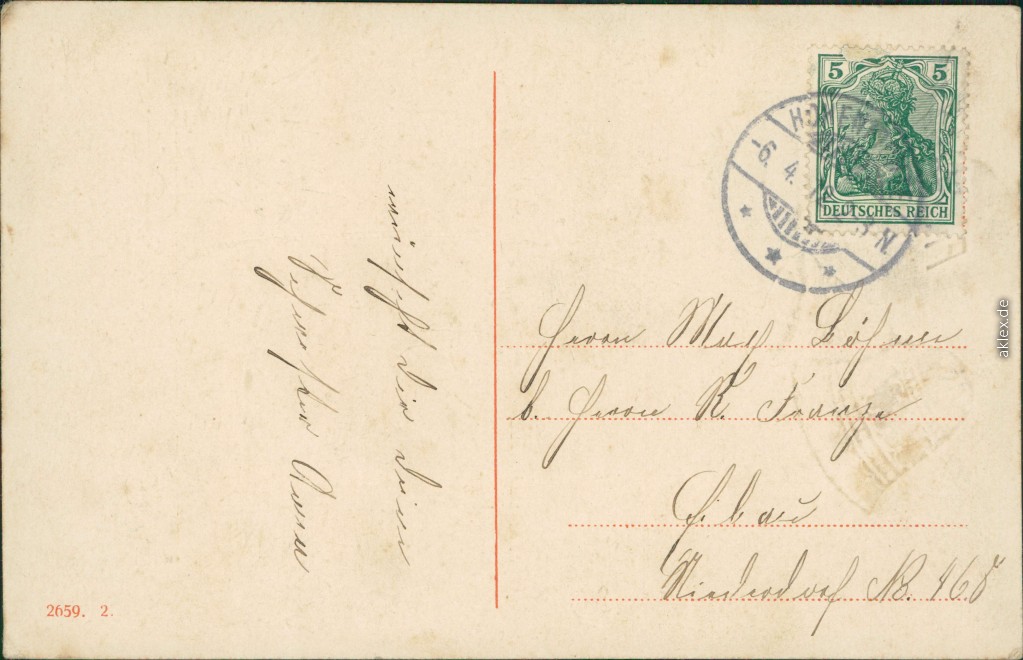 wünscht dir deine
Schwester Anna
5 5
DEUTSCHES REICH
-6. 4.
N
Herrn Max Böhme
b. Herrn R. Franze
Eibau
Niederdorf No. 165
2659. 2.
aklex.de